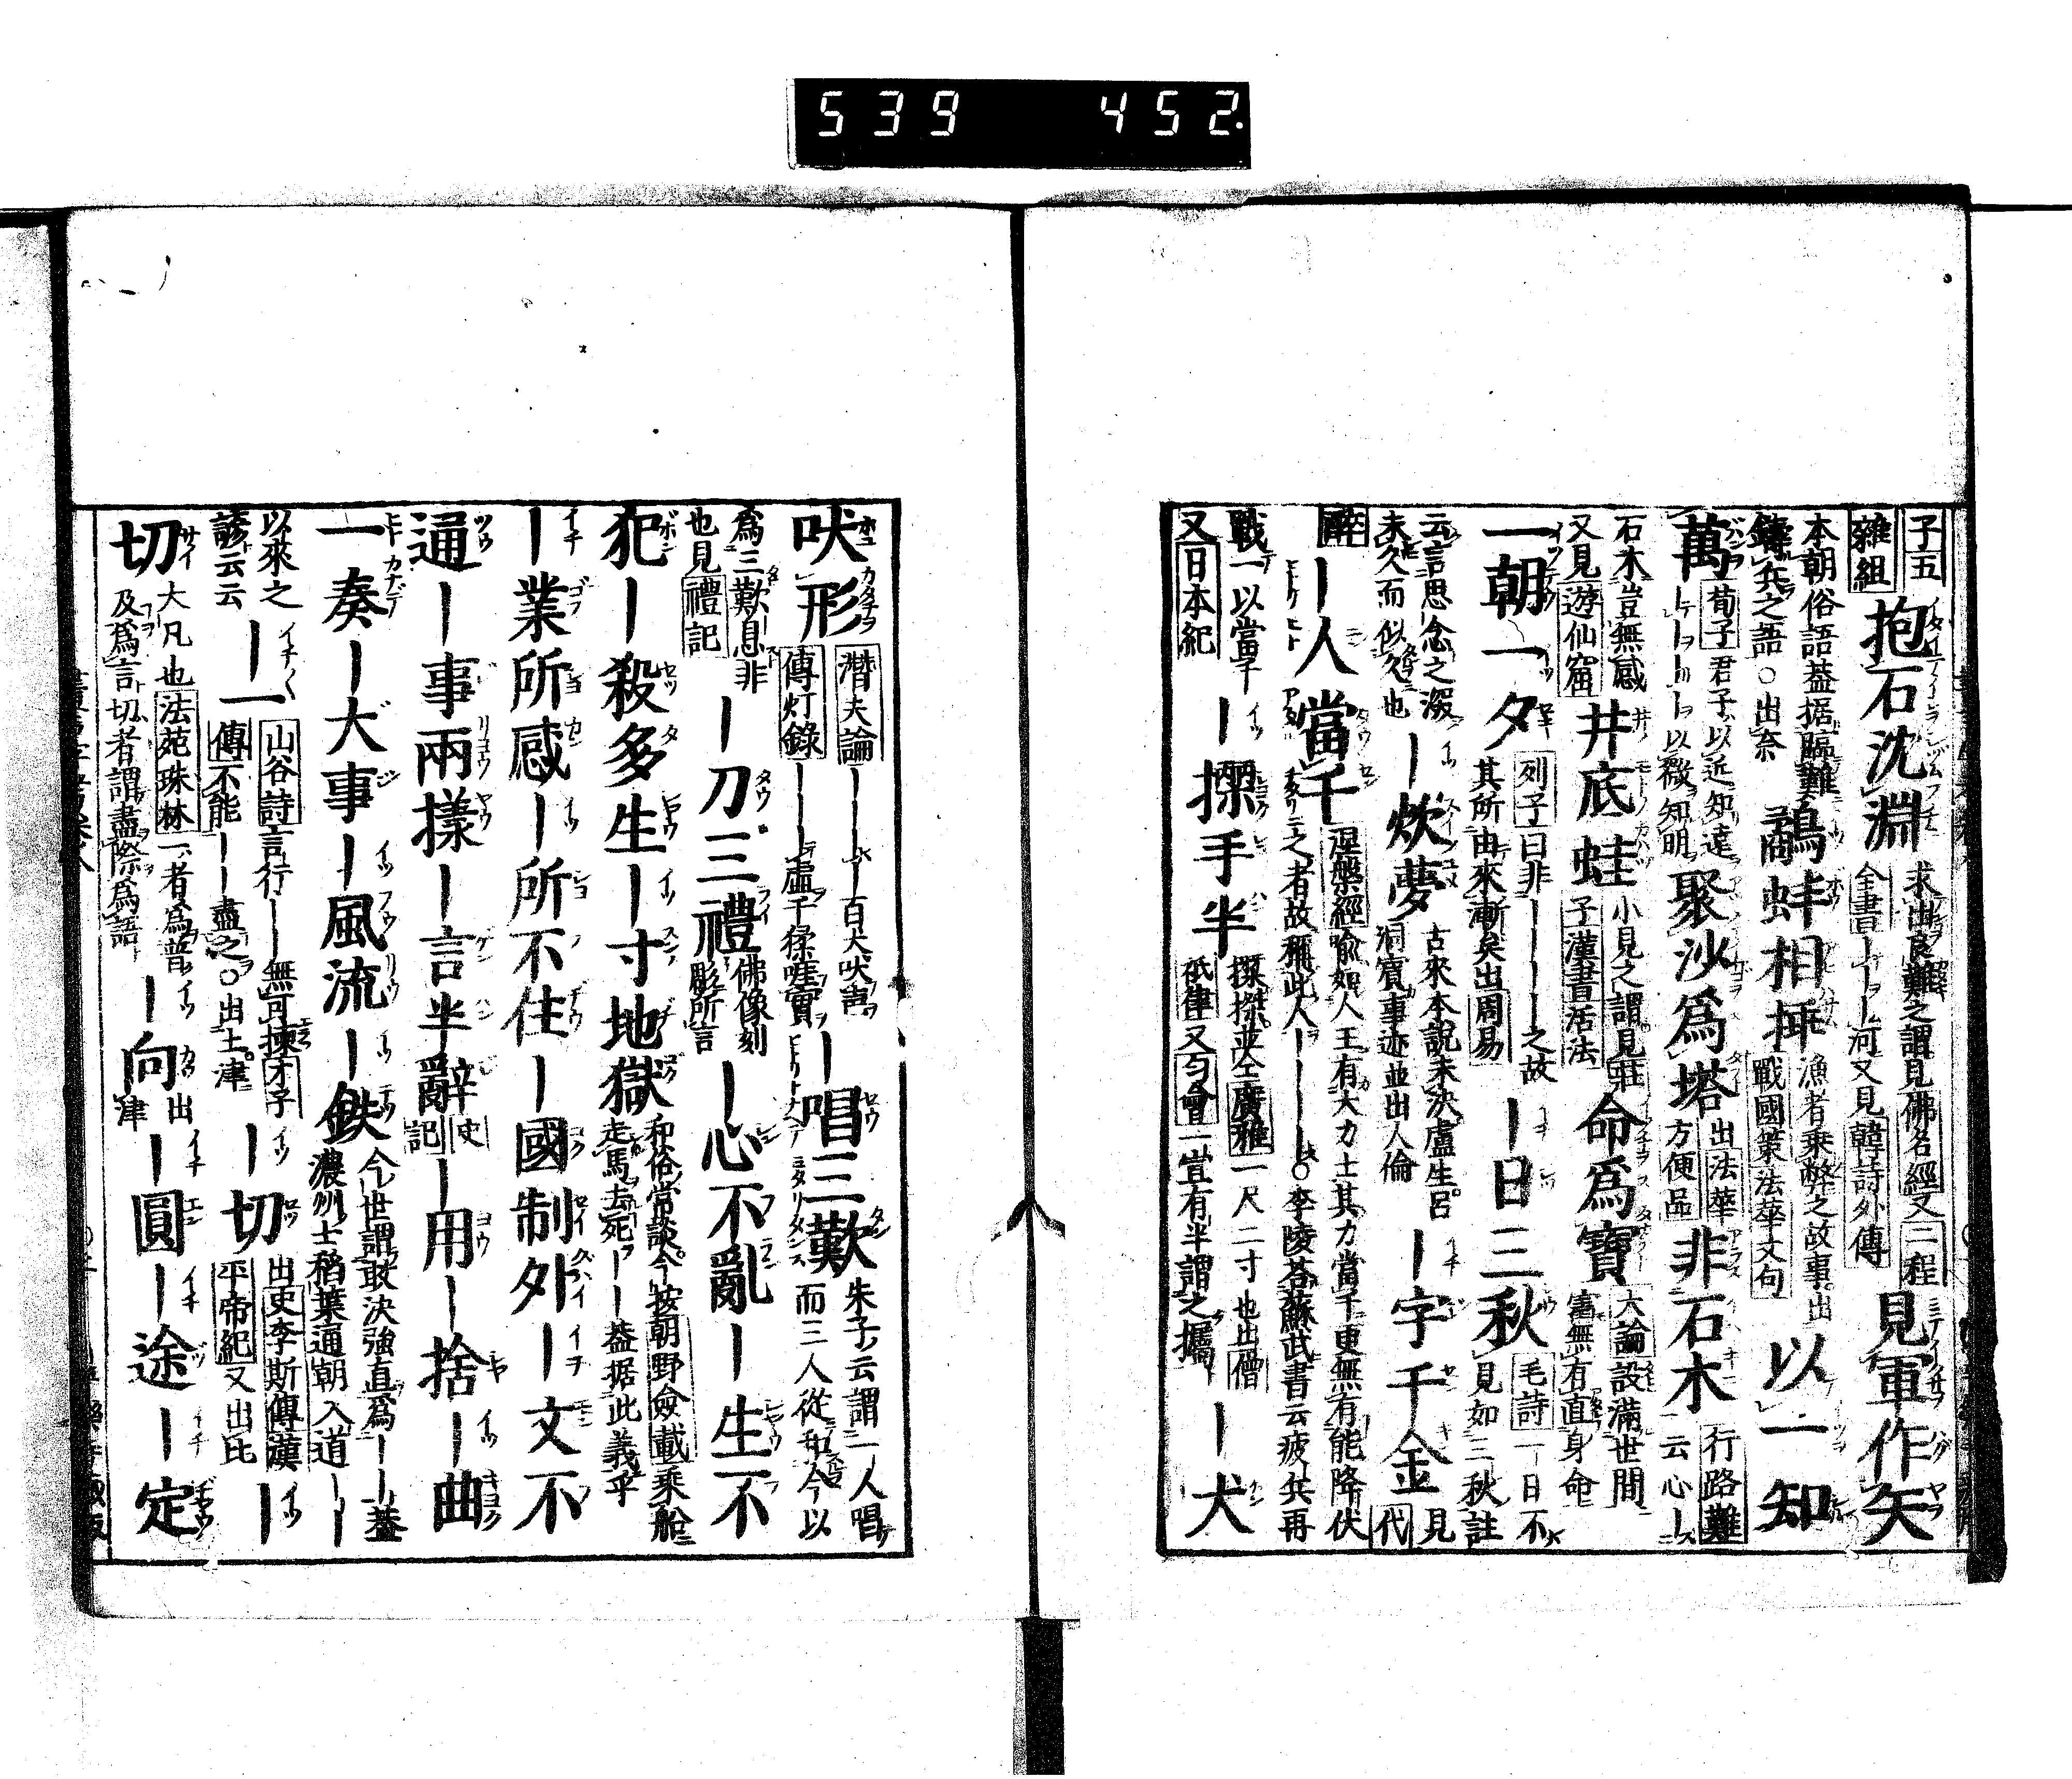 539 452.
子五
雜組
抱石沈淵
求出良難之謂見佛名經又二程
全書ーーー河又見韓詩外傳
見軍作矢
本朝俗語蓋据臨難
鑄兵之語○出奈
鷸蚌相挿
漁者乗弊之故事出
戰國策法華文句
以一知
萬
荀子君子以近知遠
ーー以微知明
聚沙爲塔
出法華
方便品
非石木
行路難
云心ー
石木豈無感
又見遊仙窟
井底蛙
小見之謂見莊
子漢書活法
命爲寶
大論設滿世間
寳無有直身命
一朝一夕
列子曰非ーーーー之故
其所由來漸矣出周易
ー日三秋
毛詩一日不
見如三秋註
云言思念之深
未久而似久也
ー炊夢
古來本説未決盧生呂
洞賓事迹並出人倫
ー字千金
見
代
醉
ー人當千
涅槃經喩如人王有大力士其力當千更無有能降伏
之者故稱此人ーーーー○李陵荅蘇武書云疲兵再
戰一以當千
又日本紀
ー擽手半
搩搩並仝廣雅一尺二寸也出僧
祇律又匀會一豈有半謂之攜
ー犬
吠形
潛夫論ーーーー百犬吠声
傳灯錄ーーーー虚千猱嘊實
ー唱三歎
朱子云謂一人唱
而三人從和今以
爲三歎息非
也見禮記
ー刀三禮
佛像刻
彫所言
ー心不亂ー生不
犯ー殺多生ー寸地獄
和俗常談今按朝野僉載乘船
走馬去死ーー蓋据此義乎
ー業所感ー所不住ー國制外ー文不
通ー事兩樣ー言半辭
史
記
ー用ー捨ー曲
一奏ー大事ー風流ー鉄
今世謂敢決強直爲ーー蓋
濃州士稻葉通朝入道ーー
以來之
諺云云
ー一
山谷詩言行ーー無可揀才子
傳不能ーー盡之○出土津
ー切
出史李斯傳漢
平帝紀又出比
ー
切
大凡也法苑珠林一者爲普
及爲言切者謂盡際爲語
ー向
出
津
ー圓ー途ー定